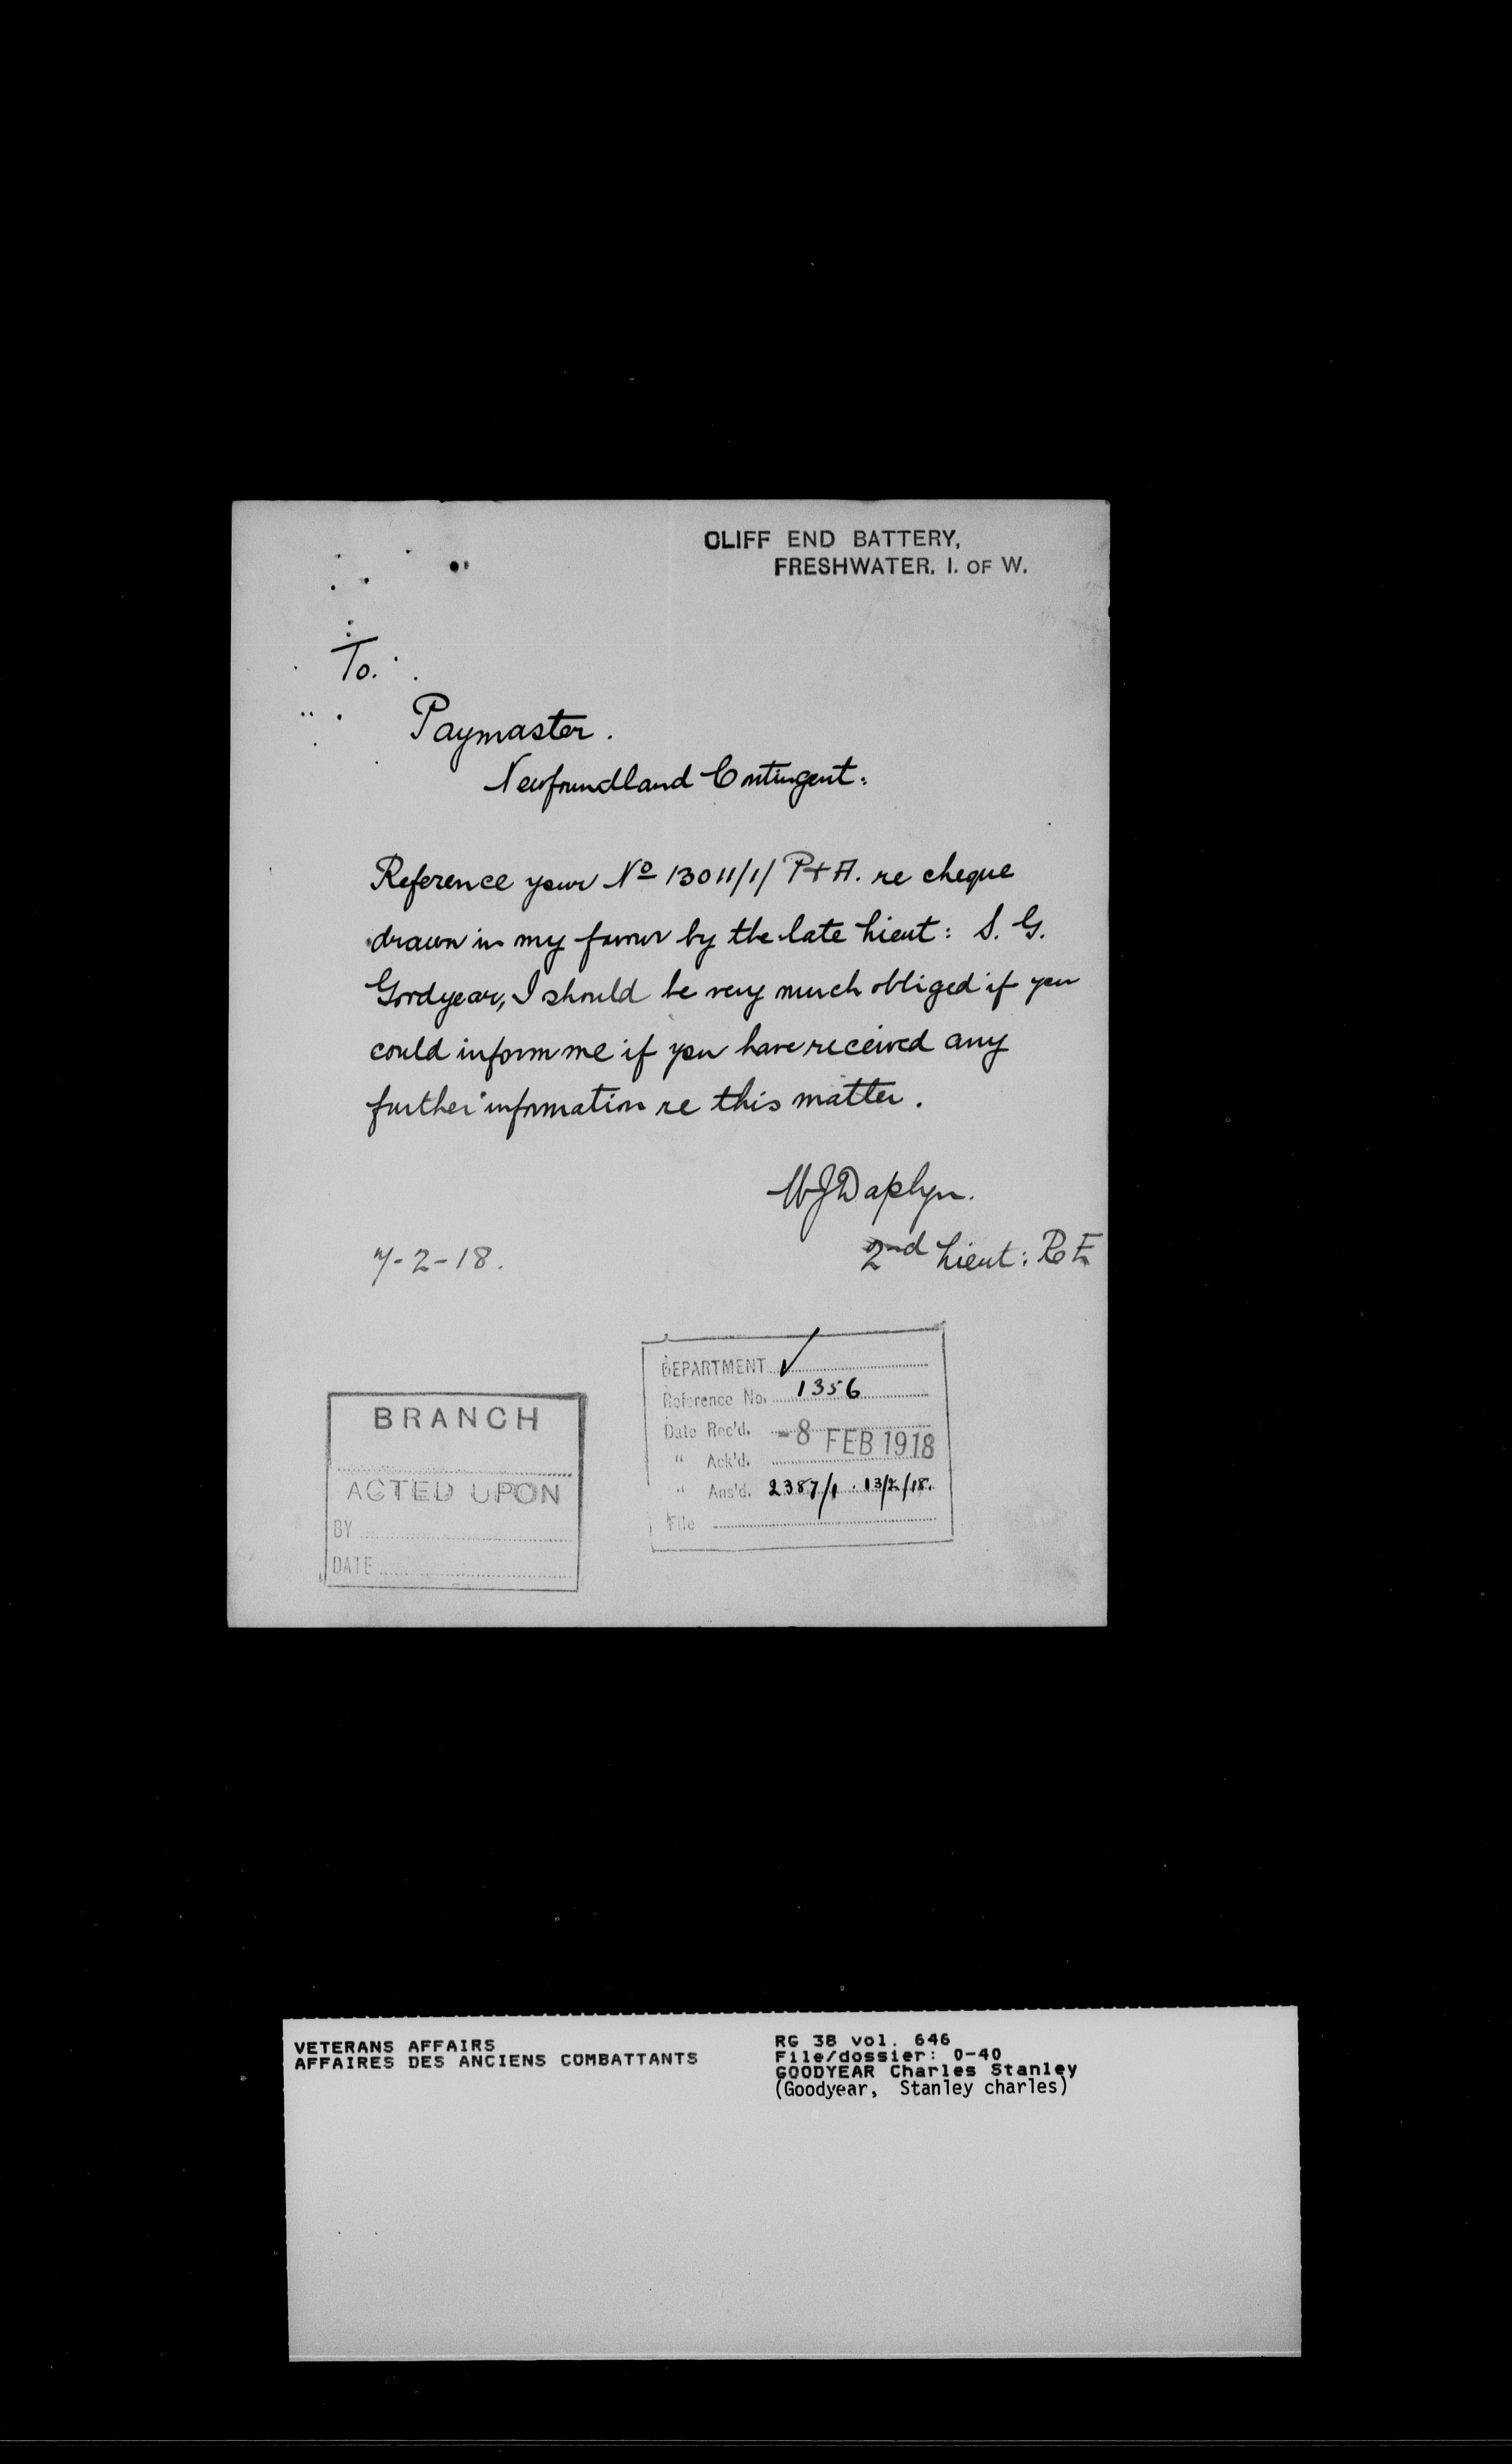 CLIFF END BATTERY,
FRESHWATER. I. OF W.
To.
Paymaster.
Newfoundland Contingent:
Reference your No 13011/1/ P+A. re cheque
drawn in my favour by the late Lieut: S. G.
Goodyear, I should be very much obliged if you
could inform me if you have received any
further information re this matter.
WJDaplyn.
2nd Lieut: RE
7-2-18.
DEPARTMENT
Reference No. 1356
Date Rec'd. -8 FEB 1918
" Ack'd.
" Ans'd. 2387/1. 13/2/18.
File
BRANCH
ACTED UPON
BY
DATE
VETERANS AFFAIRS
AFFAIRES DES ANCIENS COMBATTANTS
RG 38 vol. 646
File/dossier: 0-40
GOODYEAR Charles Stanley
(Goodyear, Stanley charles)